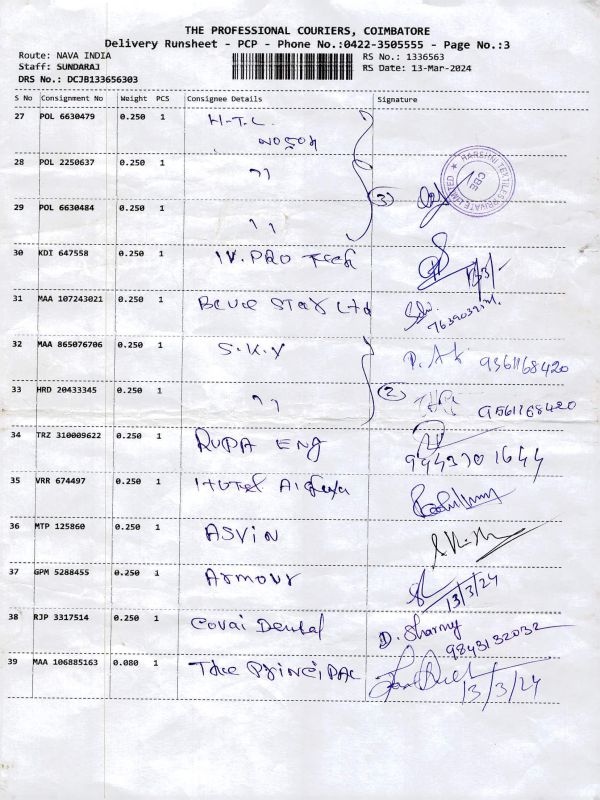 THE PROFESSIONAL COURIERS, COIMBATORE
Delivery Runsheet - PCP - Phone No.:0422-3505555 - Page No.:3
Route: NAVA INDIA
Staff: SUNDARAJ
DRS No.: DCJB133656303
RS No.: 1336563
RS Date: 13-Mar-2024
S No Consignment No Weight PCS Consignee Details Signature
27 POL 6630479 0.250 1 H.T.L.
28 POL 2250637 0.250 1 ,,
HARSHNI TEXTILES PRIVATE LIMITED ★ CBE
29 POL 6630484 0.250 1 ,, (3)
30 KDI 647558 0.250 1 IV. PRO Tech
31 MAA 107243021 0.250 1 BLUE STAR Ltd
32 MAA 865076706 0.250 1 S.K.Y 9361168420
33 HRD 20433345 0.250 1 ,, (2) 9561168420
34 TRZ 310009622 0.250 1 RUPA ENG 9443701644
35 VRR 674497 0.250 1 Hotel
36 MTP 125860 0.250 1 ASVIN
37 GPM 5288455 0.250 1 Armour 13/3/24
38 RJP 3317514 0.250 1 Covai Dental D. Sharmy
9843132032
39 MAA 106885163 0.080 1 The PrinciPAL 13/3/24